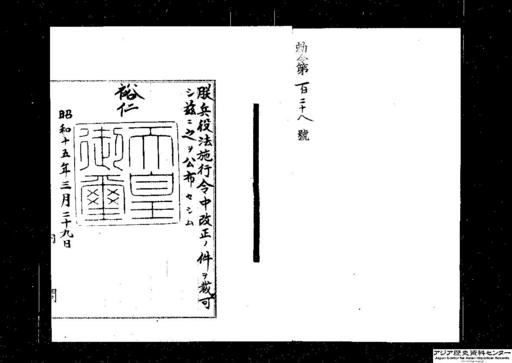 勅令第百二十八號
朕兵役法施行令中改正ノ件ヲ裁可
シ茲ニ之ヲ公布セシム
裕仁
天皇
御璽
昭和十五年三月二十九日
アジア歴史資料センター
Japan Center for Asian Historical Records